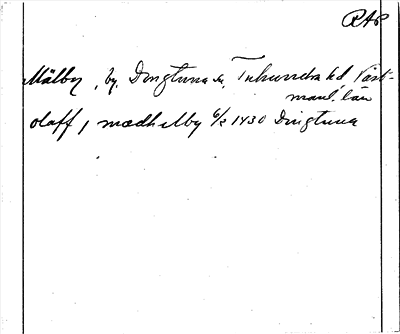 RAP
Mälby, by, Dingtuna sn, Tuhundra hd Väst-
manl. län
olaff j mædhelby 6/2 1430 Dingtuna